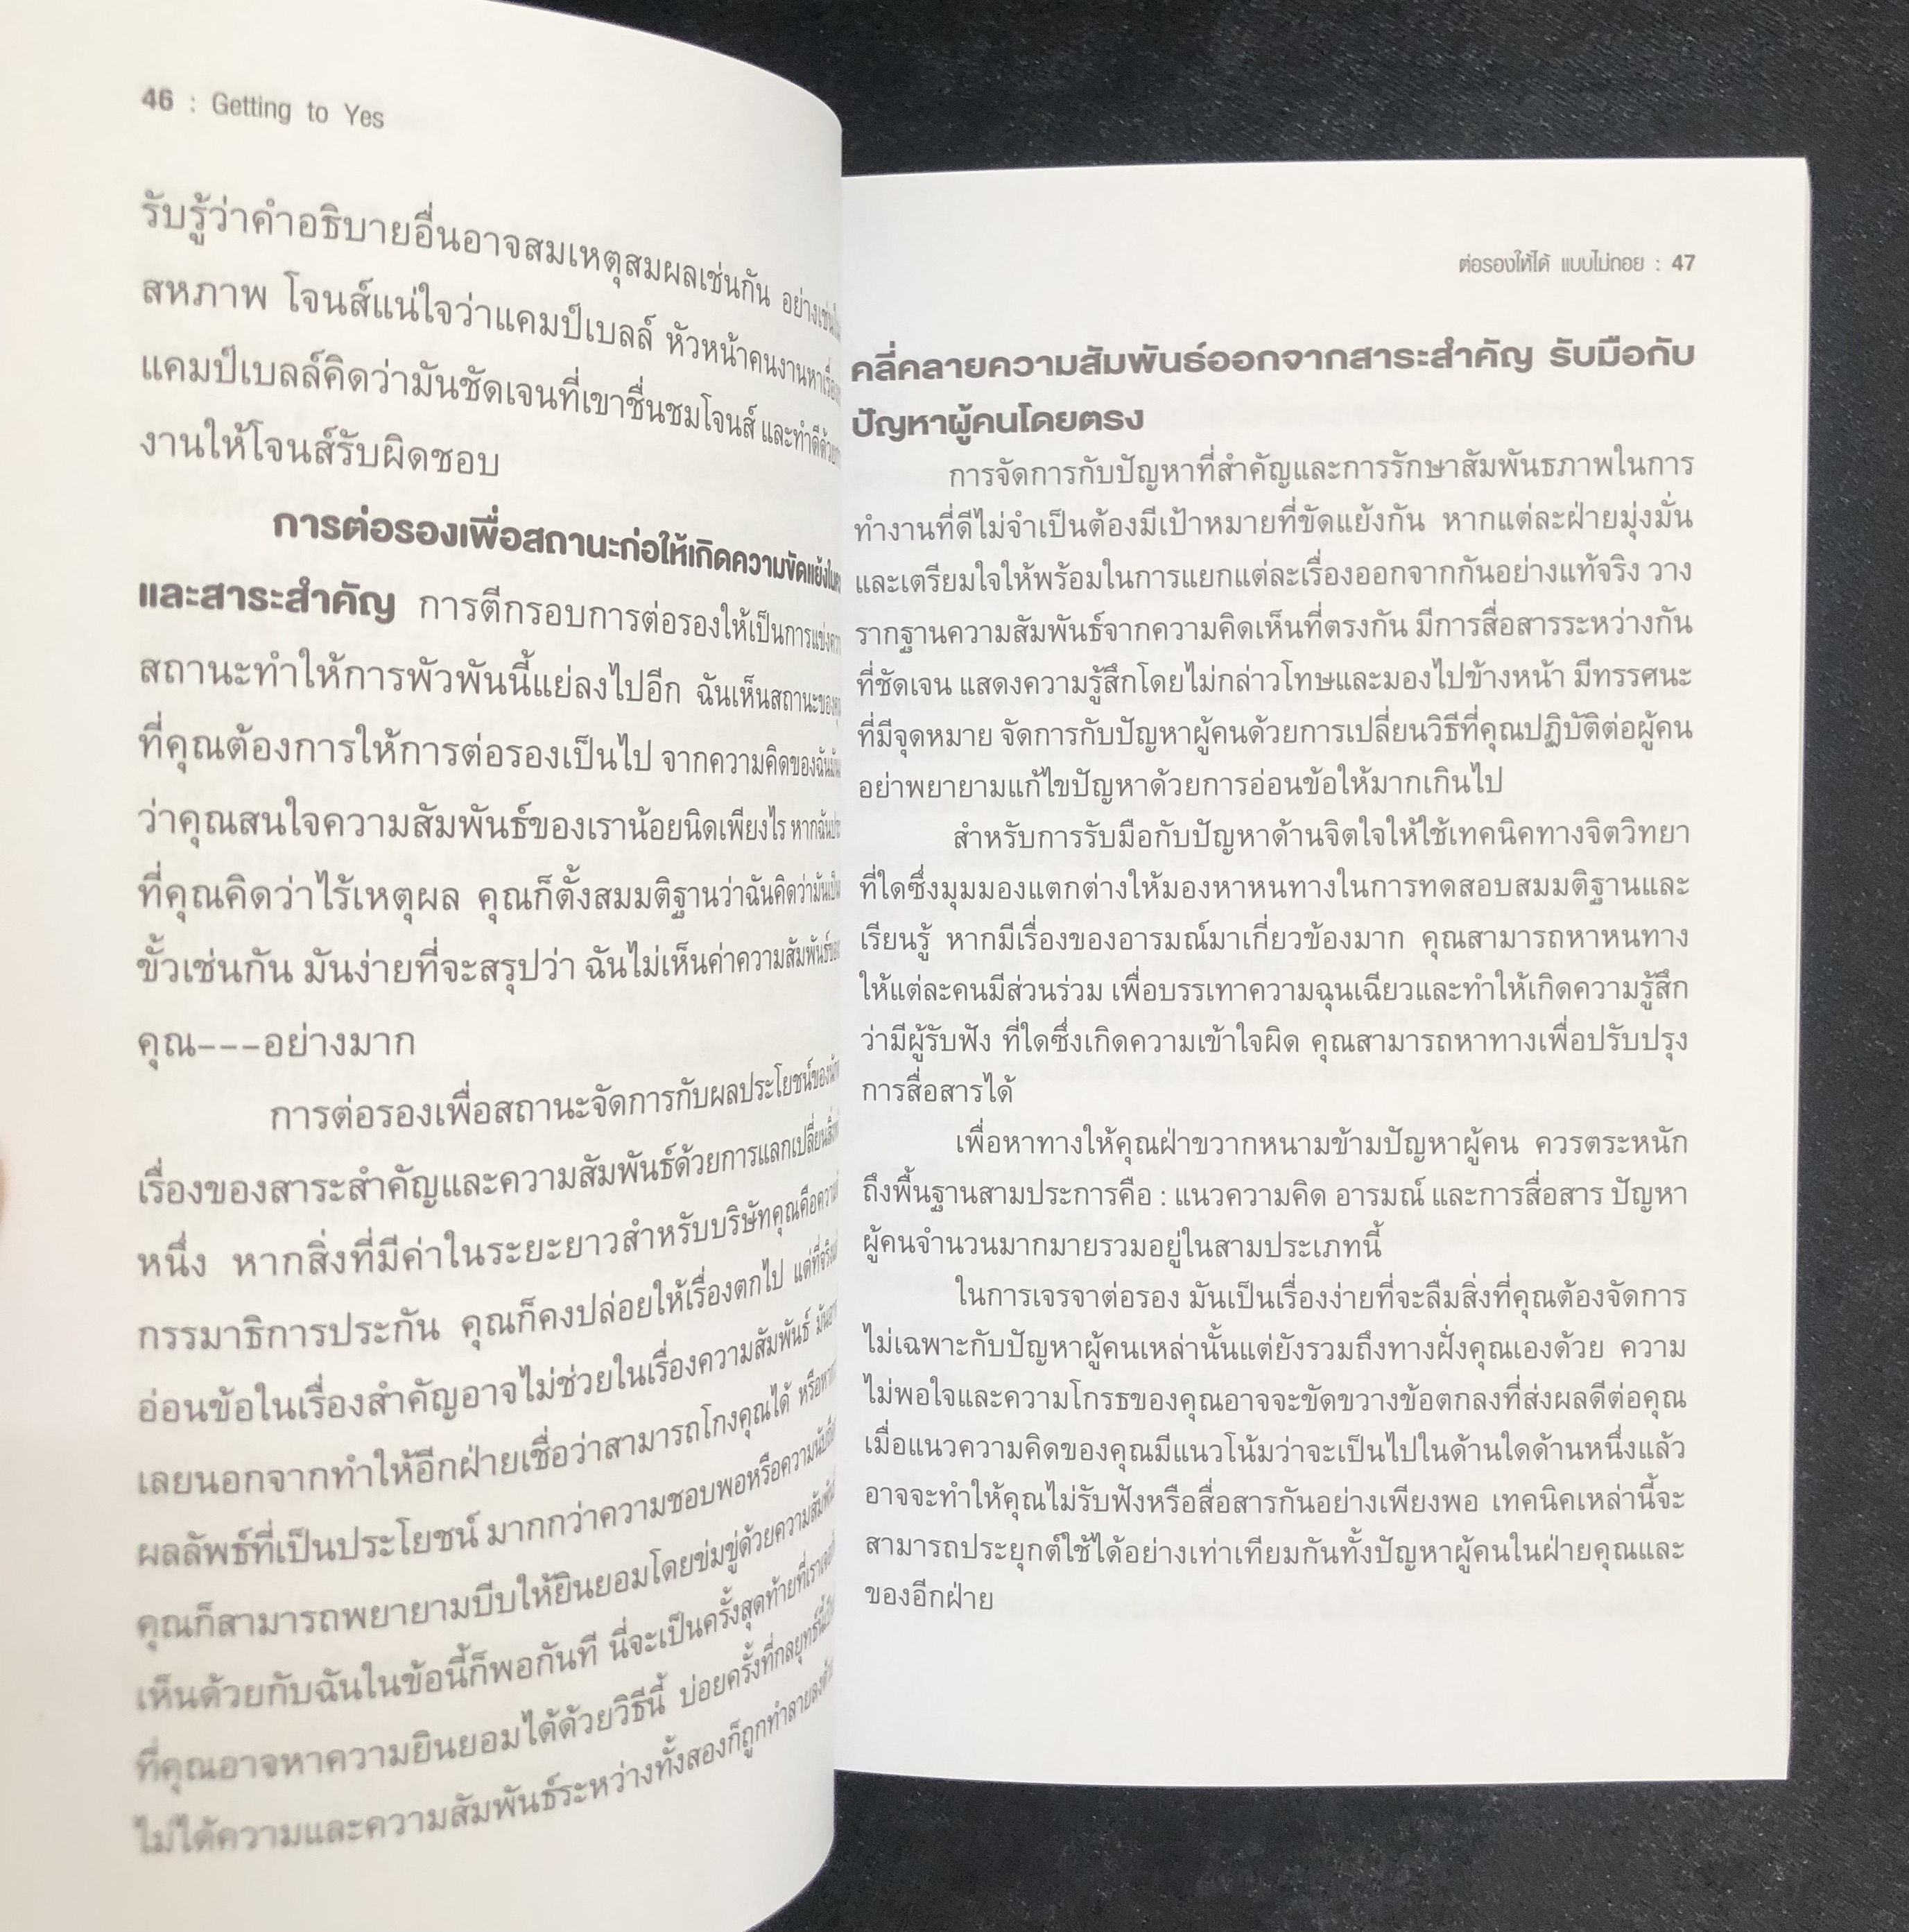 46 : Getting to Yes
รับรู้ว่าคำอธิบายอื่นอาจสมเหตุสมผลเช่นกัน อย่างเช่น
สหภาพ โจนส์แน่ใจว่าแคมป์เบลล์ หัวหน้าคนงานหาเรื่อง
แคมป์เบลล์คิดว่ามันชัดเจนที่เขาชื่นชมโจนส์ และทำดีด้วย
งานให้โจนส์รับผิดชอบ
การต่อรองเพื่อสถานะก่อให้เกิดความขัดแย้งใน
และสาระสำคัญ การตีกรอบการต่อรองให้เป็นการแข่ง
สถานะทำให้การพัวพันนี้แย่ลงไปอีก ฉันเห็นสถานะของ
ที่คุณต้องการให้การต่อรองเป็นไป จากความคิดของฉัน
ว่าคุณสนใจความสัมพันธ์ของเราน้อยนิดเพียงไร หากฉัน
ที่คุณคิดว่าไร้เหตุผล คุณก็ตั้งสมมติฐานว่าฉันคิดว่ามันเป็น
ขั้วเช่นกัน มันง่ายที่จะสรุปว่า ฉันไม่เห็นค่าความสัมพันธ์ของ
คุณ---อย่างมาก
การต่อรองเพื่อสถานะจัดการกับผลประโยชน์ของ
เรื่องของสาระสำคัญและความสัมพันธ์ด้วยการแลกเปลี่ยน
หนึ่ง หากสิ่งที่มีค่าในระยะยาวสำหรับบริษัทคุณคือความ
กรรมาธิการประกัน คุณก็คงปล่อยให้เรื่องตกไป แต่ที่จริง
อ่อนข้อในเรื่องสำคัญอาจไม่ช่วยในเรื่องความสัมพันธ์
เลยนอกจากทำให้อีกฝ่ายเชื่อว่าสามารถโกงคุณได้ หรือหาก
ผลลัพธ์ที่เป็นประโยชน์ มากกว่าความชอบพอหรือความนับถือ
คุณก็สามารถพยายามบีบให้ยินยอมโดยข่มขู่ด้วยความสัมพันธ์
เห็นด้วยกับฉันในข้อนี้ก็พอกันที นี่จะเป็นครั้งสุดท้ายที่เรา
ที่คุณอาจหาความยินยอมได้ด้วยวิธีนี้ บ่อยครั้งที่กลยุทธ์นี้
ไม่ได้ความและความสัมพันธ์ระหว่างทั้งสองก็ถูกทำลายลง
ต่อรองให้ได้ แบบไม่ถอย : 47
คลี่คลายความสัมพันธ์ออกจากสาระสำคัญ รับมือกับ
ปัญหาผู้คนโดยตรง
การจัดการกับปัญหาที่สำคัญและการรักษาสัมพันธภาพในการ
ทำงานที่ดีไม่จำเป็นต้องมีเป้าหมายที่ขัดแย้งกัน หากแต่ละฝ่ายมุ่งมั่น
และเตรียมใจให้พร้อมในการแยกแต่ละเรื่องออกจากกันอย่างแท้จริง วาง
รากฐานความสัมพันธ์จากความคิดเห็นที่ตรงกัน มีการสื่อสารระหว่างกัน
ที่ชัดเจน แสดงความรู้สึกโดยไม่กล่าวโทษและมองไปข้างหน้า มีทรรศนะ
ที่มีจุดหมาย จัดการกับปัญหาผู้คนด้วยการเปลี่ยนวิธีที่คุณปฏิบัติต่อผู้คน
อย่าพยายามแก้ไขปัญหาด้วยการอ่อนข้อให้มากเกินไป
สำหรับการรับมือกับปัญหาด้านจิตใจให้ใช้เทคนิคทางจิตวิทยา
ที่ใดซึ่งมุมมองแตกต่างให้มองหาหนทางในการทดสอบสมมติฐานและ
เรียนรู้ หากมีเรื่องของอารมณ์มาเกี่ยวข้องมาก คุณสามารถหาหนทาง
ให้แต่ละคนมีส่วนร่วม เพื่อบรรเทาความฉุนเฉียวและทำให้เกิดความรู้สึก
ว่ามีผู้รับฟัง ที่ใดซึ่งเกิดความเข้าใจผิด คุณสามารถหาทางเพื่อปรับปรุง
การสื่อสารได้
เพื่อหาทางให้คุณฝ่าขวากหนามข้ามปัญหาผู้คน ควรตระหนัก
ถึงพื้นฐานสามประการคือ : แนวความคิด อารมณ์ และการสื่อสาร ปัญหา
ผู้คนจำนวนมากมายรวมอยู่ในสามประเภทนี้
ในการเจรจาต่อรอง มันเป็นเรื่องง่ายที่จะลืมสิ่งที่คุณต้องจัดการ
ไม่เฉพาะกับปัญหาผู้คนเหล่านั้นแต่ยังรวมถึงทางฝั่งคุณเองด้วย ความ
ไม่พอใจและความโกรธของคุณอาจจะขัดขวางข้อตกลงที่ส่งผลดีต่อคุณ
เมื่อแนวความคิดของคุณมีแนวโน้มว่าจะเป็นไปในด้านใดด้านหนึ่งแล้ว
อาจจะทำให้คุณไม่รับฟังหรือสื่อสารกันอย่างเพียงพอ เทคนิคเหล่านี้จะ
สามารถประยุกต์ใช้ได้อย่างเท่าเทียมกันทั้งปัญหาผู้คนในฝ่ายคุณและ
ของอีกฝ่าย